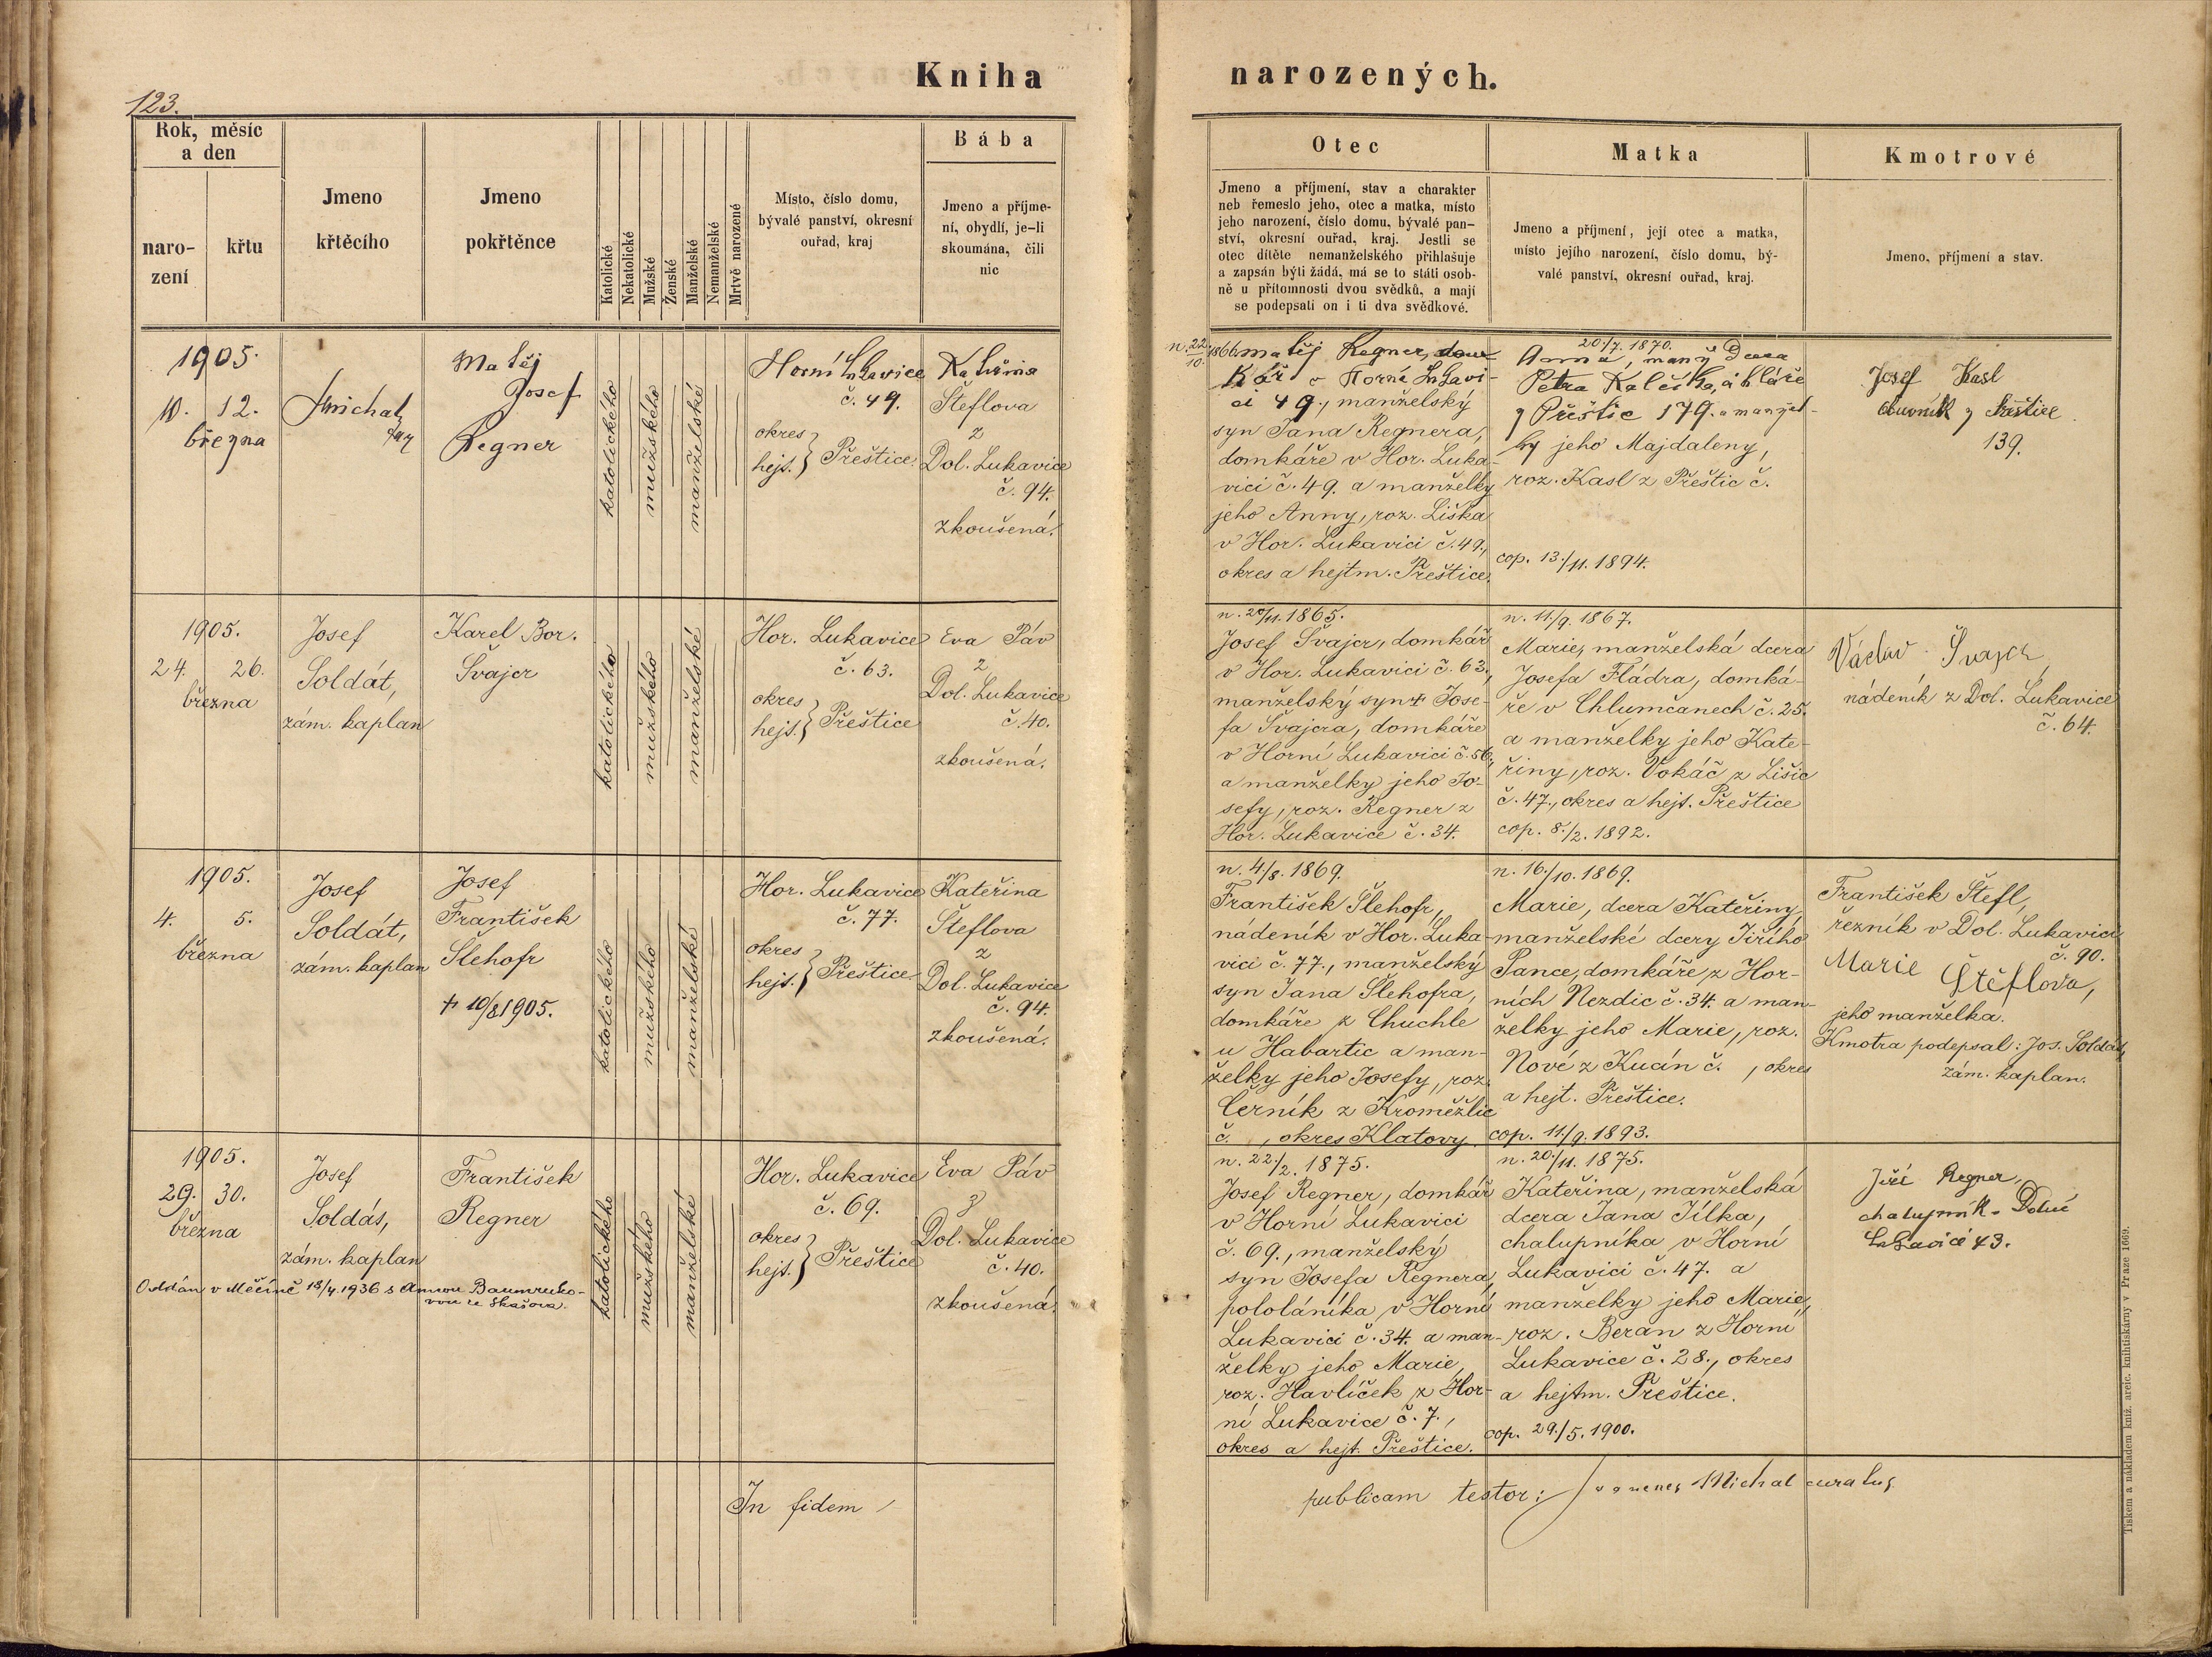 Kniha narozených.
123.
Rok, měsíc a den
naro-
zení
křtu
Jmeno
křtěcího
Jmeno
pokřtěnce
Katolické
Nekatolické
Mužské
Ženské
Manželské
Nemanželské
Mrtvě narozené
Místo, číslo domu,
bývalé panství, okresní
ouřad, kraj
Bába
Jmeno a příjme-
ní, obydlí, je-li
skoumána, čili
nic
Otec
Jmeno a příjmení, stav a charakter
neb řemeslo jeho, otec a matka, místo
jeho narození, číslo domu, bývalé pan-
ství, okresní ouřad, kraj. Jestli se
otec dítěte nemanželského přihlašuje
a zapsán býti žádá, má se to státi osob-
ně u přítomnosti dvou svědků, a mají
se podepsati on i ti dva svědkové.
Matka
Jmeno a příjmení, její otec a matka,
místo jejího narození, číslo domu, bý-
valé panství, okresní ouřad, kraj.
Kmotrové
Jmeno, příjmení a stav.
1905.
10. 12.
března
Michal
Matěj
Josef
Regner
katolického
mužského
manželské
Horní Lukavice
č. 49.
okres
hejt. } Přeštice.
Kateřina
Šteflova
z
Dol. Lukavice
č. 94.
zkoušená.
n. 22/10. 1866. Matěj Regner, dom-
kář v Horní Lukavi-
ci 49., manželský
syn Jana Regnera,
domkáře v Hor. Luka-
vici č. 49. a manželky
jeho Anny, roz. Liška
v Hor. Lukavici č. 49.,
okres a hejtm. Přeštice.
20./7. 1870.
Anna, manž dcera
Petra
z Přeštic 179. a manžel-
ky jeho Majdaleny,
roz. Kasl z Přeštic č.
cop. 13./11. 1894.
Josef Kasl
obuvník z Přeštice
139.
1905.
24. 26.
března
Josef
Soldát,
zám. kaplan
Karel Bor.
Švajcr
katolického
mužského
manželské
Hor. Lukavice
č. 63.
okres
hejt. } Přeštice
Eva Páv
z
Dol. Lukavice
č. 40.
zkoušená.
n. 20/11. 1865.
Josef Švajcr, domkář
v Hor. Lukavici č. 63.,
manželský syn † Jose-
fa Švajcra, domkáře
v Horní Lukavici č. 56.,
a manželky jeho Jo-
sefy, roz. Regner z
Hor. Lukavice č. 34.
n. 11/9. 1867.
Marie, manželská dcera
Josefa Fládra, domká-
ře v Chlumčanech č. 25.
a manželky jeho Kate-
řiny, roz. Vokáč z Lišic
č. 47., okres a hejt. Přeštice
cop. 8./2. 1892.
Václav Švajcr
nádeník z Dol. Lukavice
č. 64.
1905.
4. 5.
března
Josef
Soldát,
zám. kaplan
Josef
František
Šlehofr
† 10/8 1905.
katolického
mužského
manželské
Hor. Lukavice
č. 77.
okres
hejt. } Přeštice
Kateřina
Šteflova
z
Dol. Lukavice
č. 94.
zkoušená.
n. 4/8. 1869.
František Šlehofr,
nádeník v Hor. Luka-
vici č. 77., manželský
syn Jana Šlehofra,
domkáře z Chuchle
u Habartic a man-
želky jeho Josefy, roz.
Černík z Kroměžlic
č. , okres Klatovy.
n. 16./10. 1869.
Marie, dcera Kateřiny,
manželské dcery Jiřího
Pance, domkáře z Hor-
ních Nezdic č. 34. a man-
želky jeho Marie, roz.
Nové z Kuán č. , okres
a hejt. Přeštice.
cop. 11./9. 1893.
František Štefl,
řezník v Dol. Lukavici
č. 90.
Marie Štěflova,
jeho manželka.
Kmotra podepsal: Jos. Soldát,
zám. kaplan.
1905.
29. 30.
března
Josef
Soldás,
zám. kaplan
František
Regner
Oddán v Měčíně 18/4. 1936 s Annou Baumruko-
vou ze Skašova.
katolického
mužského
manželské
Hor. Lukavice
č. 69.
okres
hejt. } Přeštice
Eva Páv
z
Dol. Lukavice
č. 40.
zkoušená.
n. 22./2. 1875.
Josef Regner, domkář
v Horní Lukavici
č. 69., manželský
syn Josefa Regnera,
pololáníka v Horní
Lukavici č. 34. a man-
želky jeho Marie,
roz. Havlíček z Hor-
ní Lukavice č. 7.,
okres a hejt. Přeštice.
n. 20./11. 1875.
Kateřina, manželská
dcera Jana Jílka,
chalupníka v Horní
Lukavici č. 47. a
manželky jeho Marie,
roz. Beran z Horní
Lukavice č. 28., okres
a hejtm. Přeštice.
cop. 29./5. 1900.
Jiří Regner,
chalupník Dolní
Lukavici 43.
In fidem publicam testor: Michal curatus
Tiskem a nákladem kníž. arcib. knihtiskárny v Praze 1669.